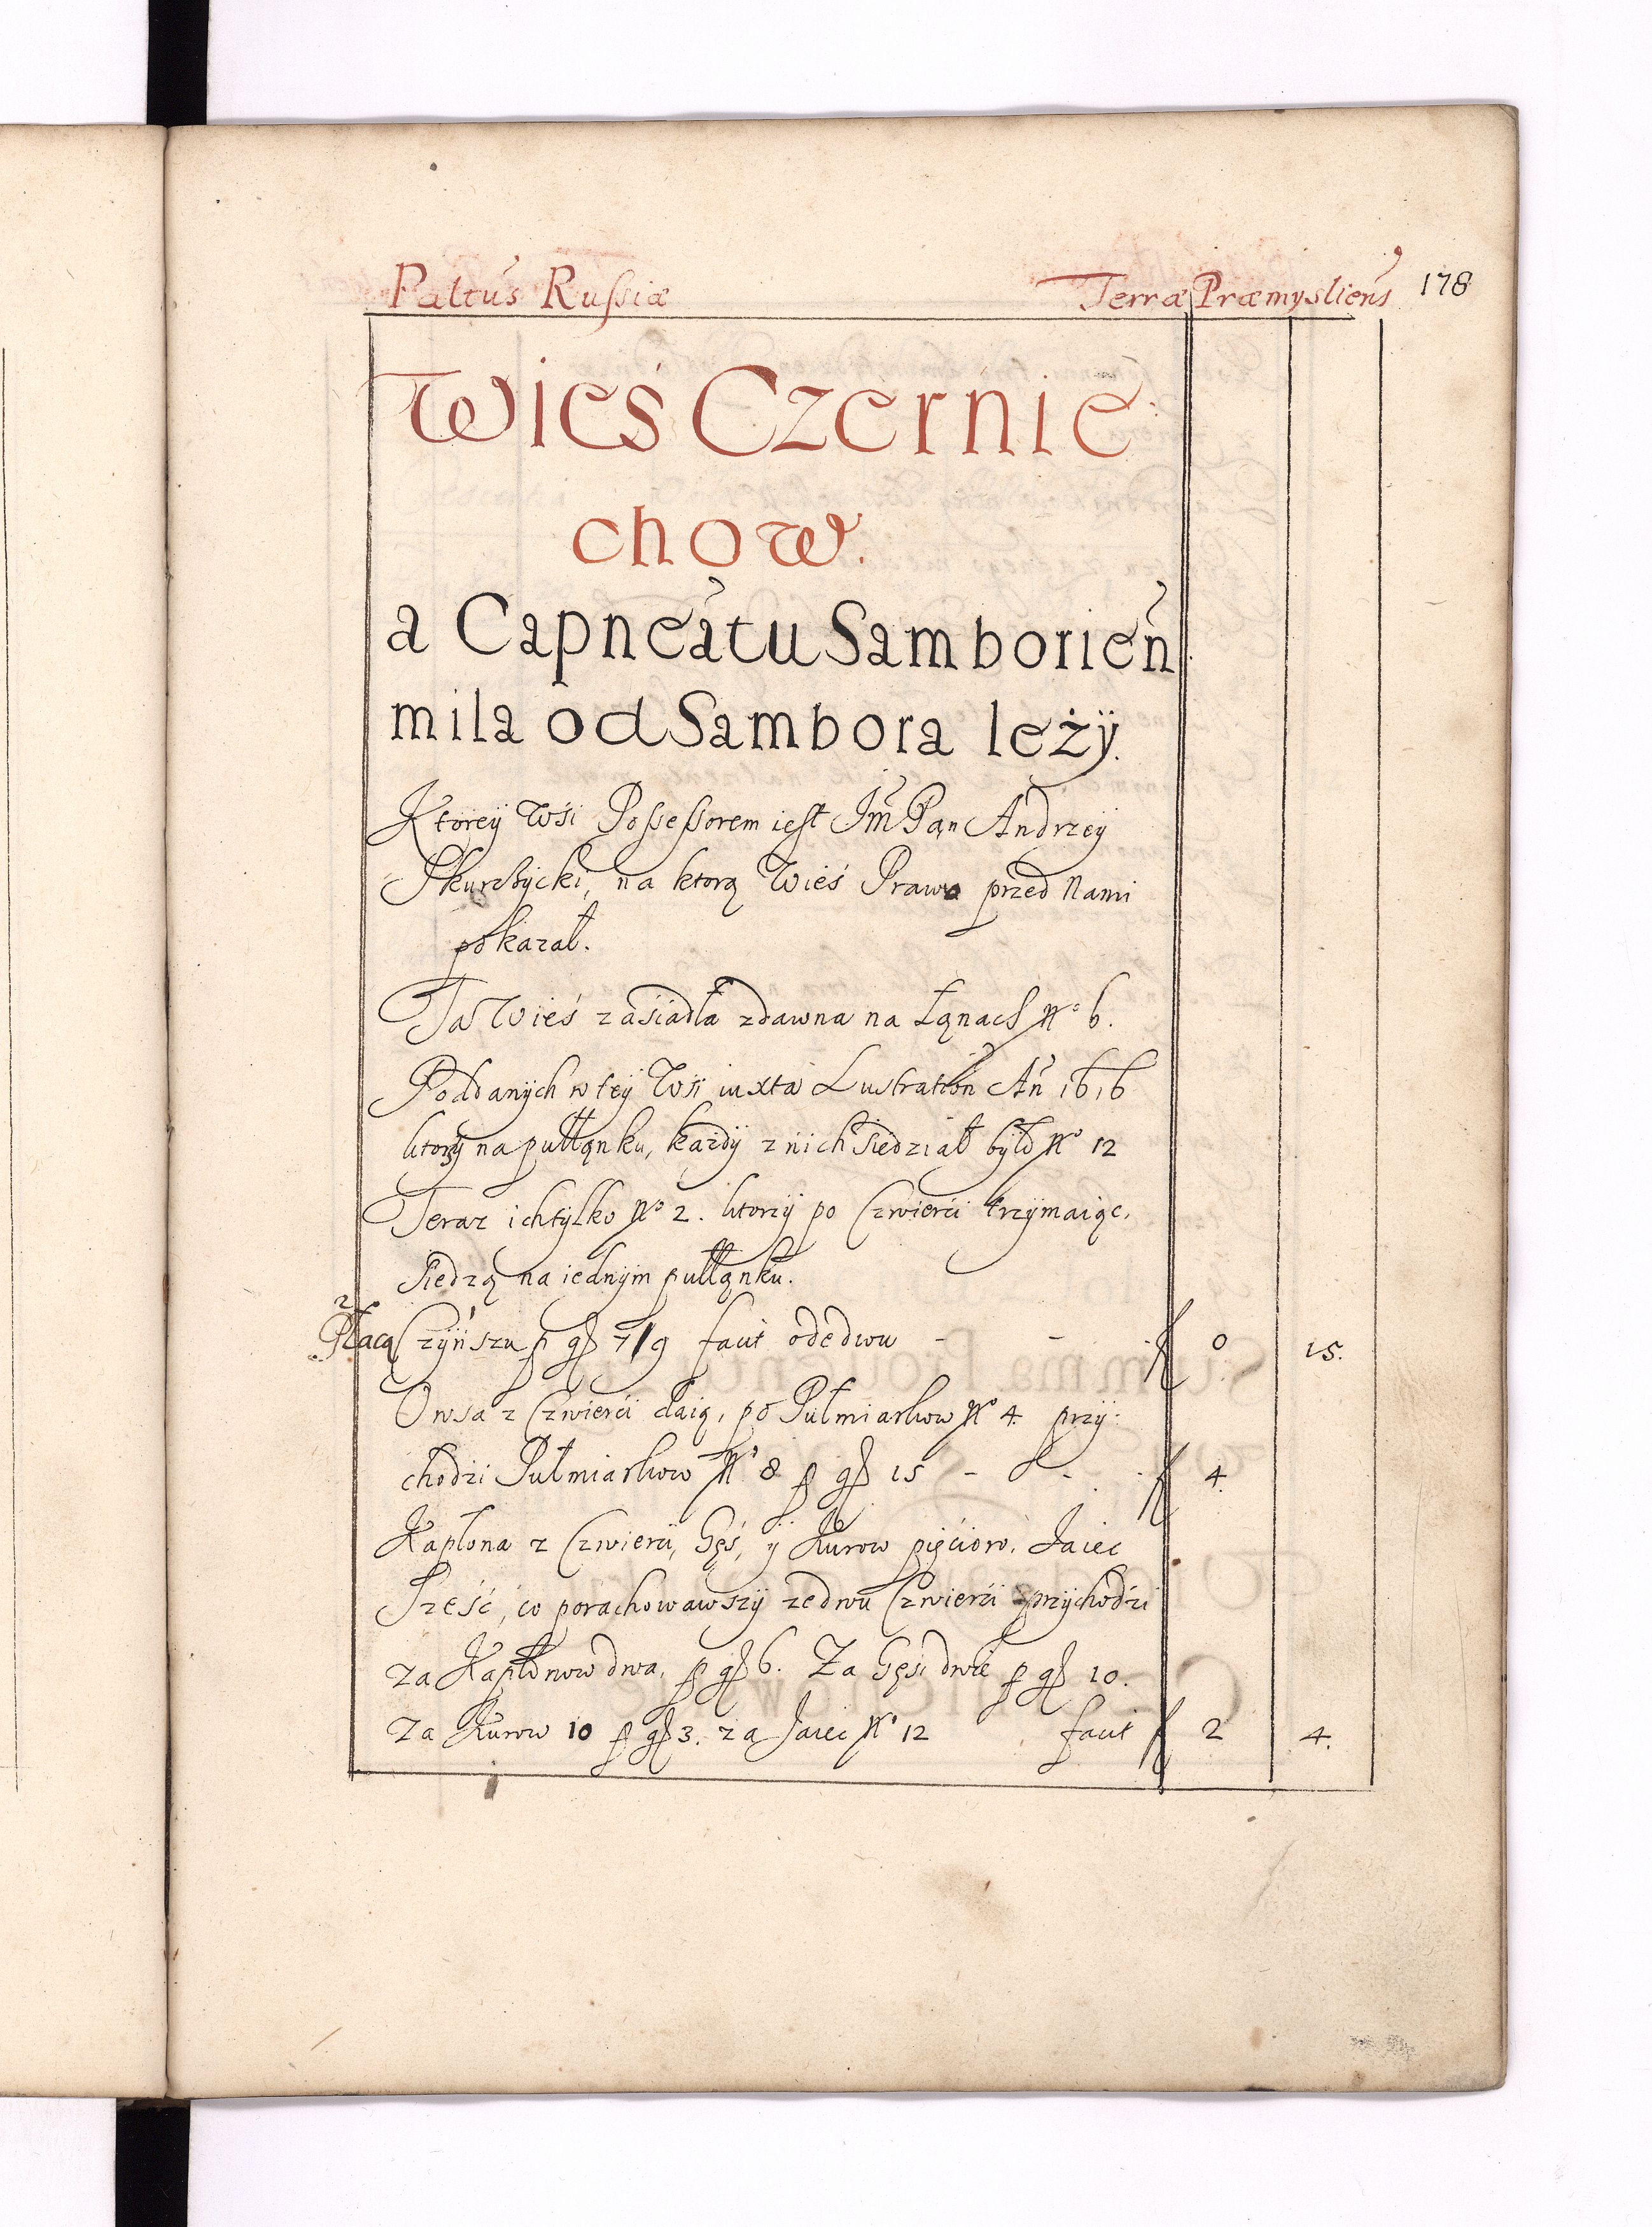 Paltus Russiæ Terræ Præmysliens 178
Wieś Czernie
chow.
a Capneatu Samborien
mila od Sambora leży.
Ktorey Wśi Possessorem iest Jm Pan Andrzey
na ktorą Wieś Prawo przed Nami
pokazał.
Ta Wieś zasiadła zdawna na Łąnach No 6.
Poddanych w tey Wśi iuxta Lustration An 1616
ktorzy na pułłąnku, każdy z nich siedział było No 12
Teraz ich tylko No 2. ktorzy po Czwierći trzymaiąc,
siedzą na iednym pułłąnku.
Płacą Czynszu p gs 7/9 facit odedwu - - f 0 15.
Owsa z Czwierći daią, po Pułmiarkow No 4 przy:
chodzi Pułmiarkow No 8 p gs 15 - - f 4.
Kapłona z Czwierći, Gęś, y Kurow pięćioro, Jaiec
Sześć, co porachowawszy zedwu Czwierći przychodzi
za Kapłonow dwa, p gs 6. Za Gęsi dwie p gs 10.
Za Kurow 10 p gs 3. za Jaiec No 12 facit f 2 4.